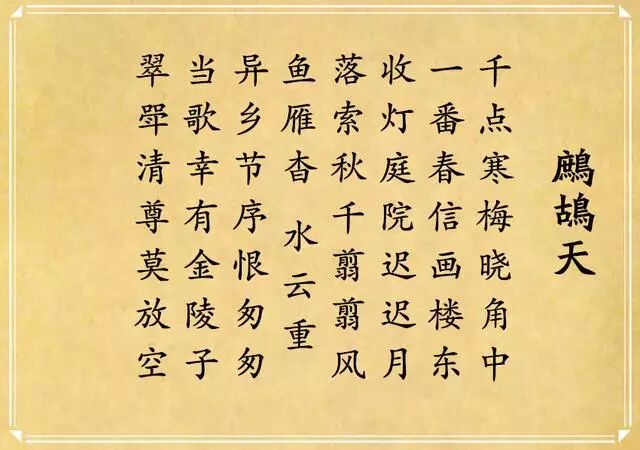 鷓鴣天
千点寒梅晓角中
一番春信画楼东
收灯庭院迟迟月
落索秋千翦翦风
鱼雁杳 水云重
异乡节序恨匆匆
当歌幸有金陵子
翠斝清尊莫放空